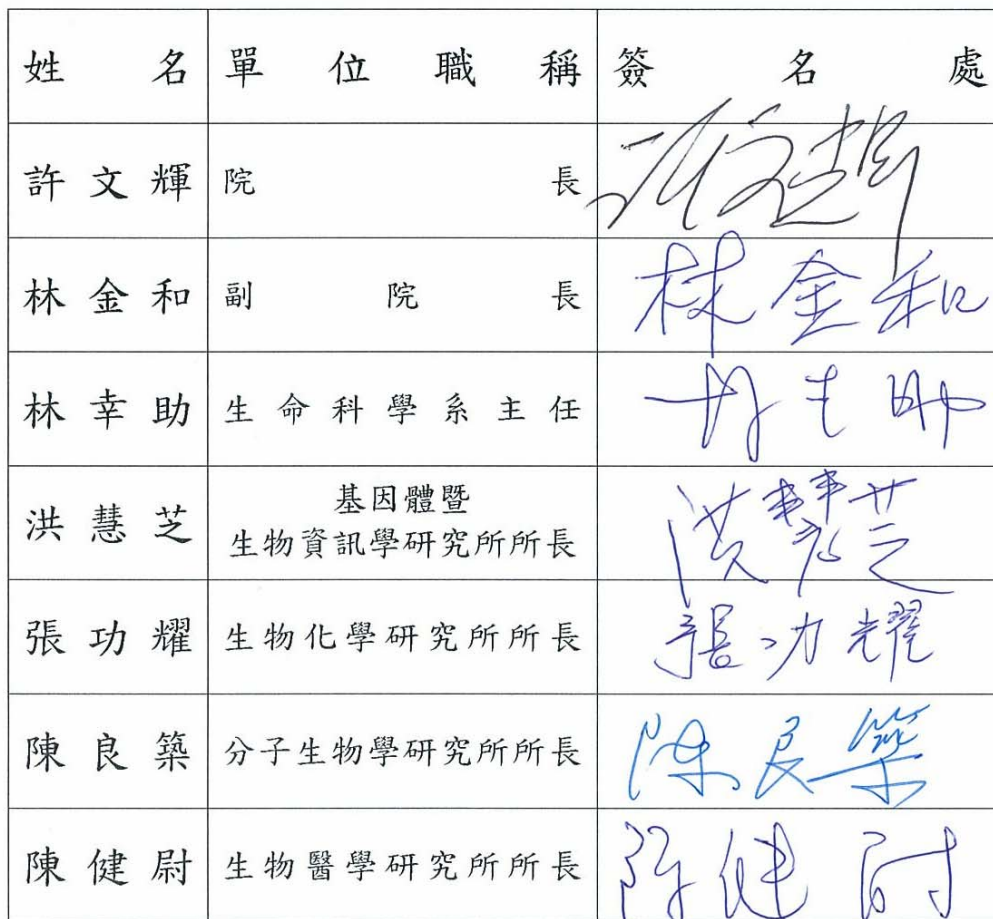 姓名 單位職稱 簽名處
許文輝 院長 許文輝
林金和 副院長 林金和
林幸助 生命科學系主任
洪慧芝 基因體暨
生物資訊學研究所所長 洪慧芝
張功耀 生物化學研究所所長 張功耀
陳良築 分子生物學研究所所長 陳良築
陳健尉 生物醫學研究所所長 陳健尉